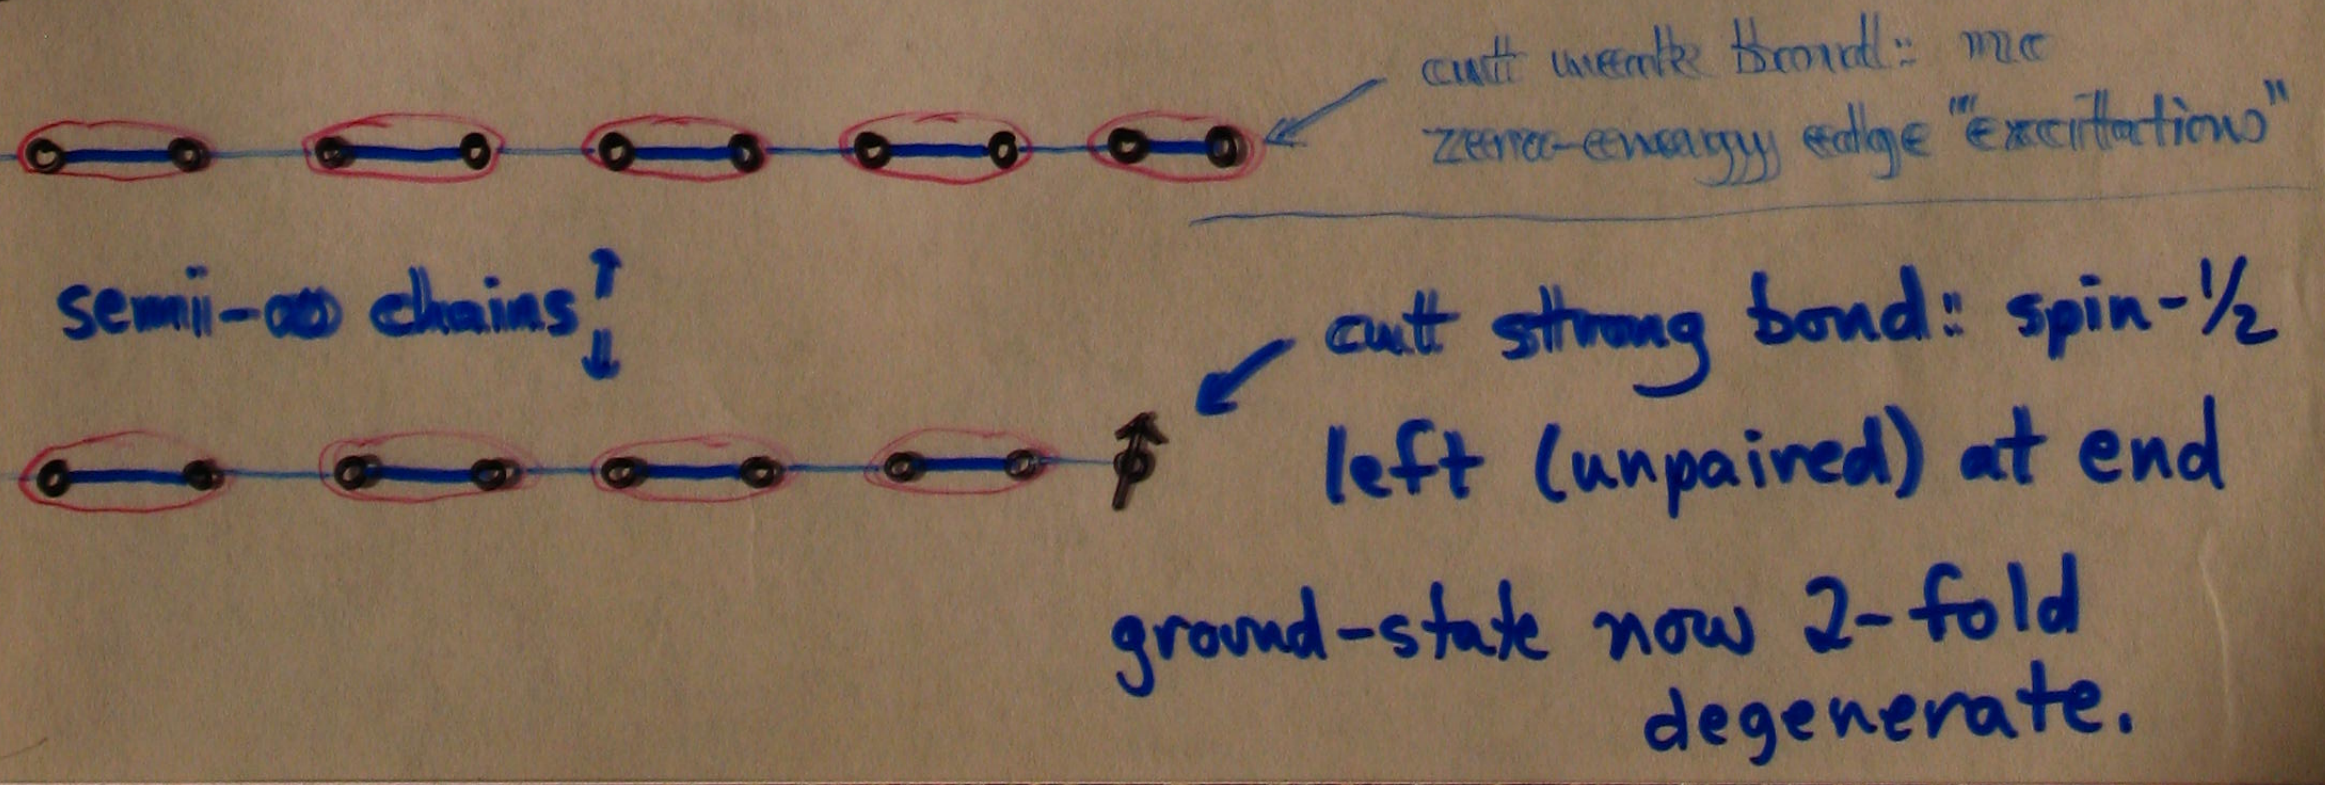 cut weak bond: no
zero-energy edge "excitations"
semi-∞ chains
cut strong bond: spin-1/2
left (unpaired) at end
ground-state now 2-fold
degenerate.